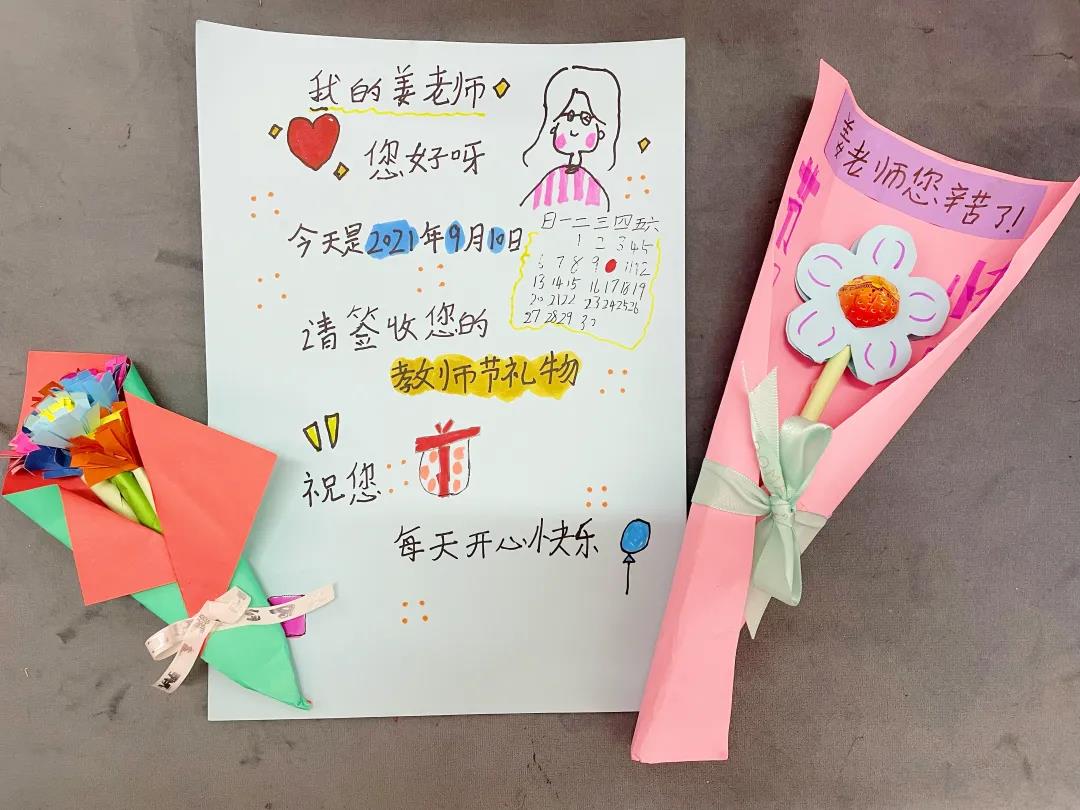 我的姜老师
您好呀
今天是2021年9月10日
日一二三四五六
1 2 3 4 5
6 7 8 9 11 12
13 14 15 16 17 18 19
20 21 22 23 24 25 26
27 28 29 30
请签收您的
教师节礼物
祝您
每天开心快乐
姜老师您辛苦了!